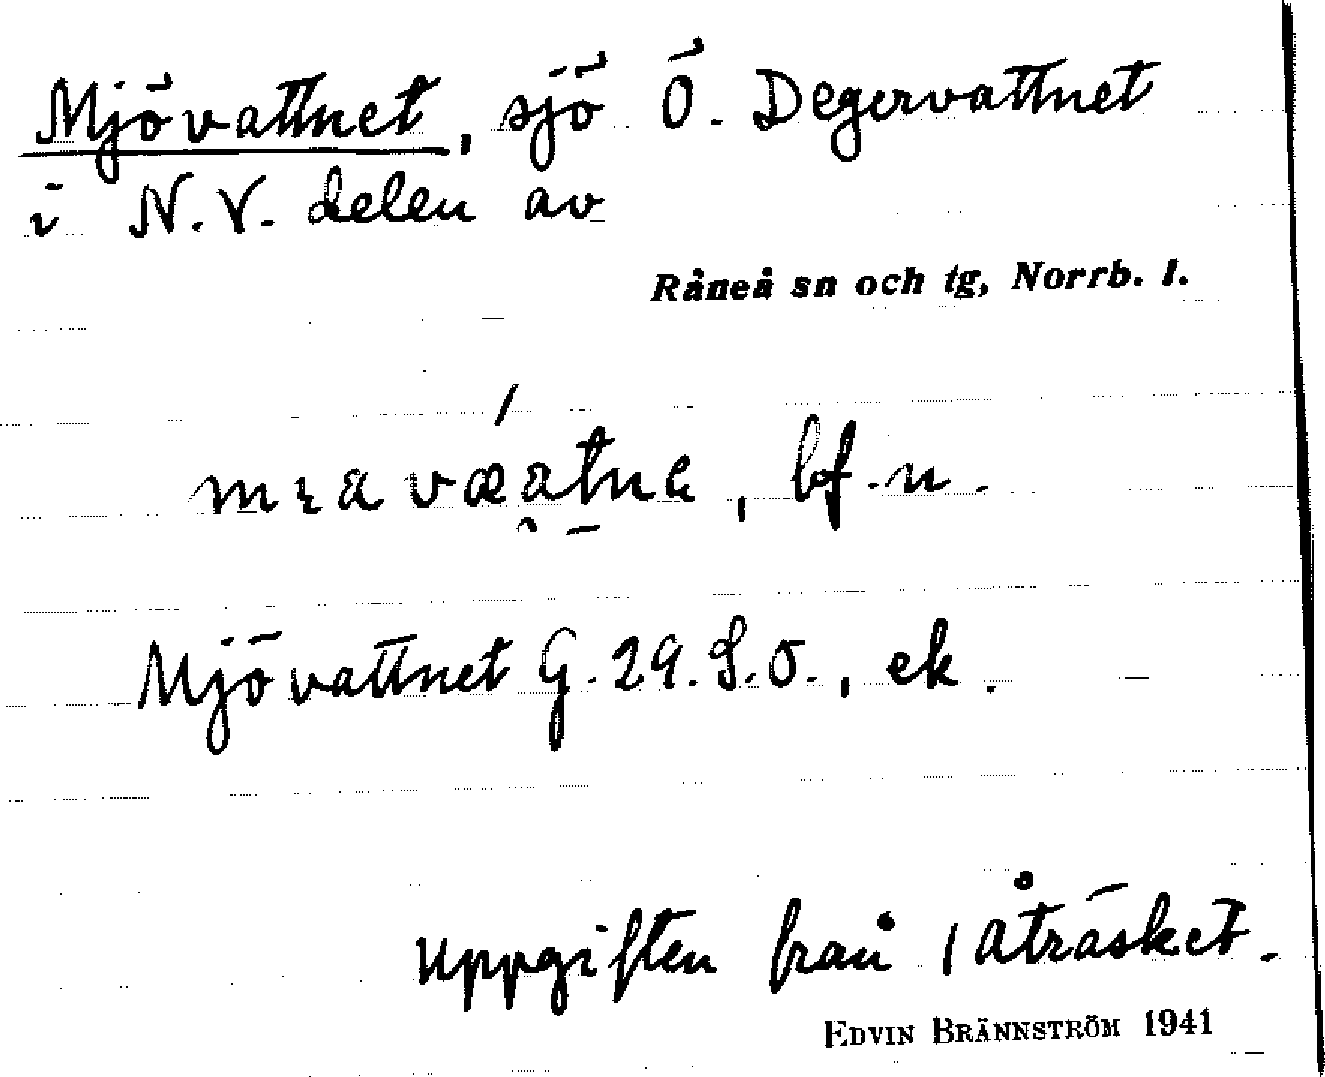 Mjövattnet, sjö Ö. Degervattnet
i N.V. delen av
Råneå sn och tg, Norrb. l.
bf. n.
Mjövattnet G. 29. S.O., ek.
Uppgiften från Låträsket.
EDVIN BRÄNNSTRÖM 1941